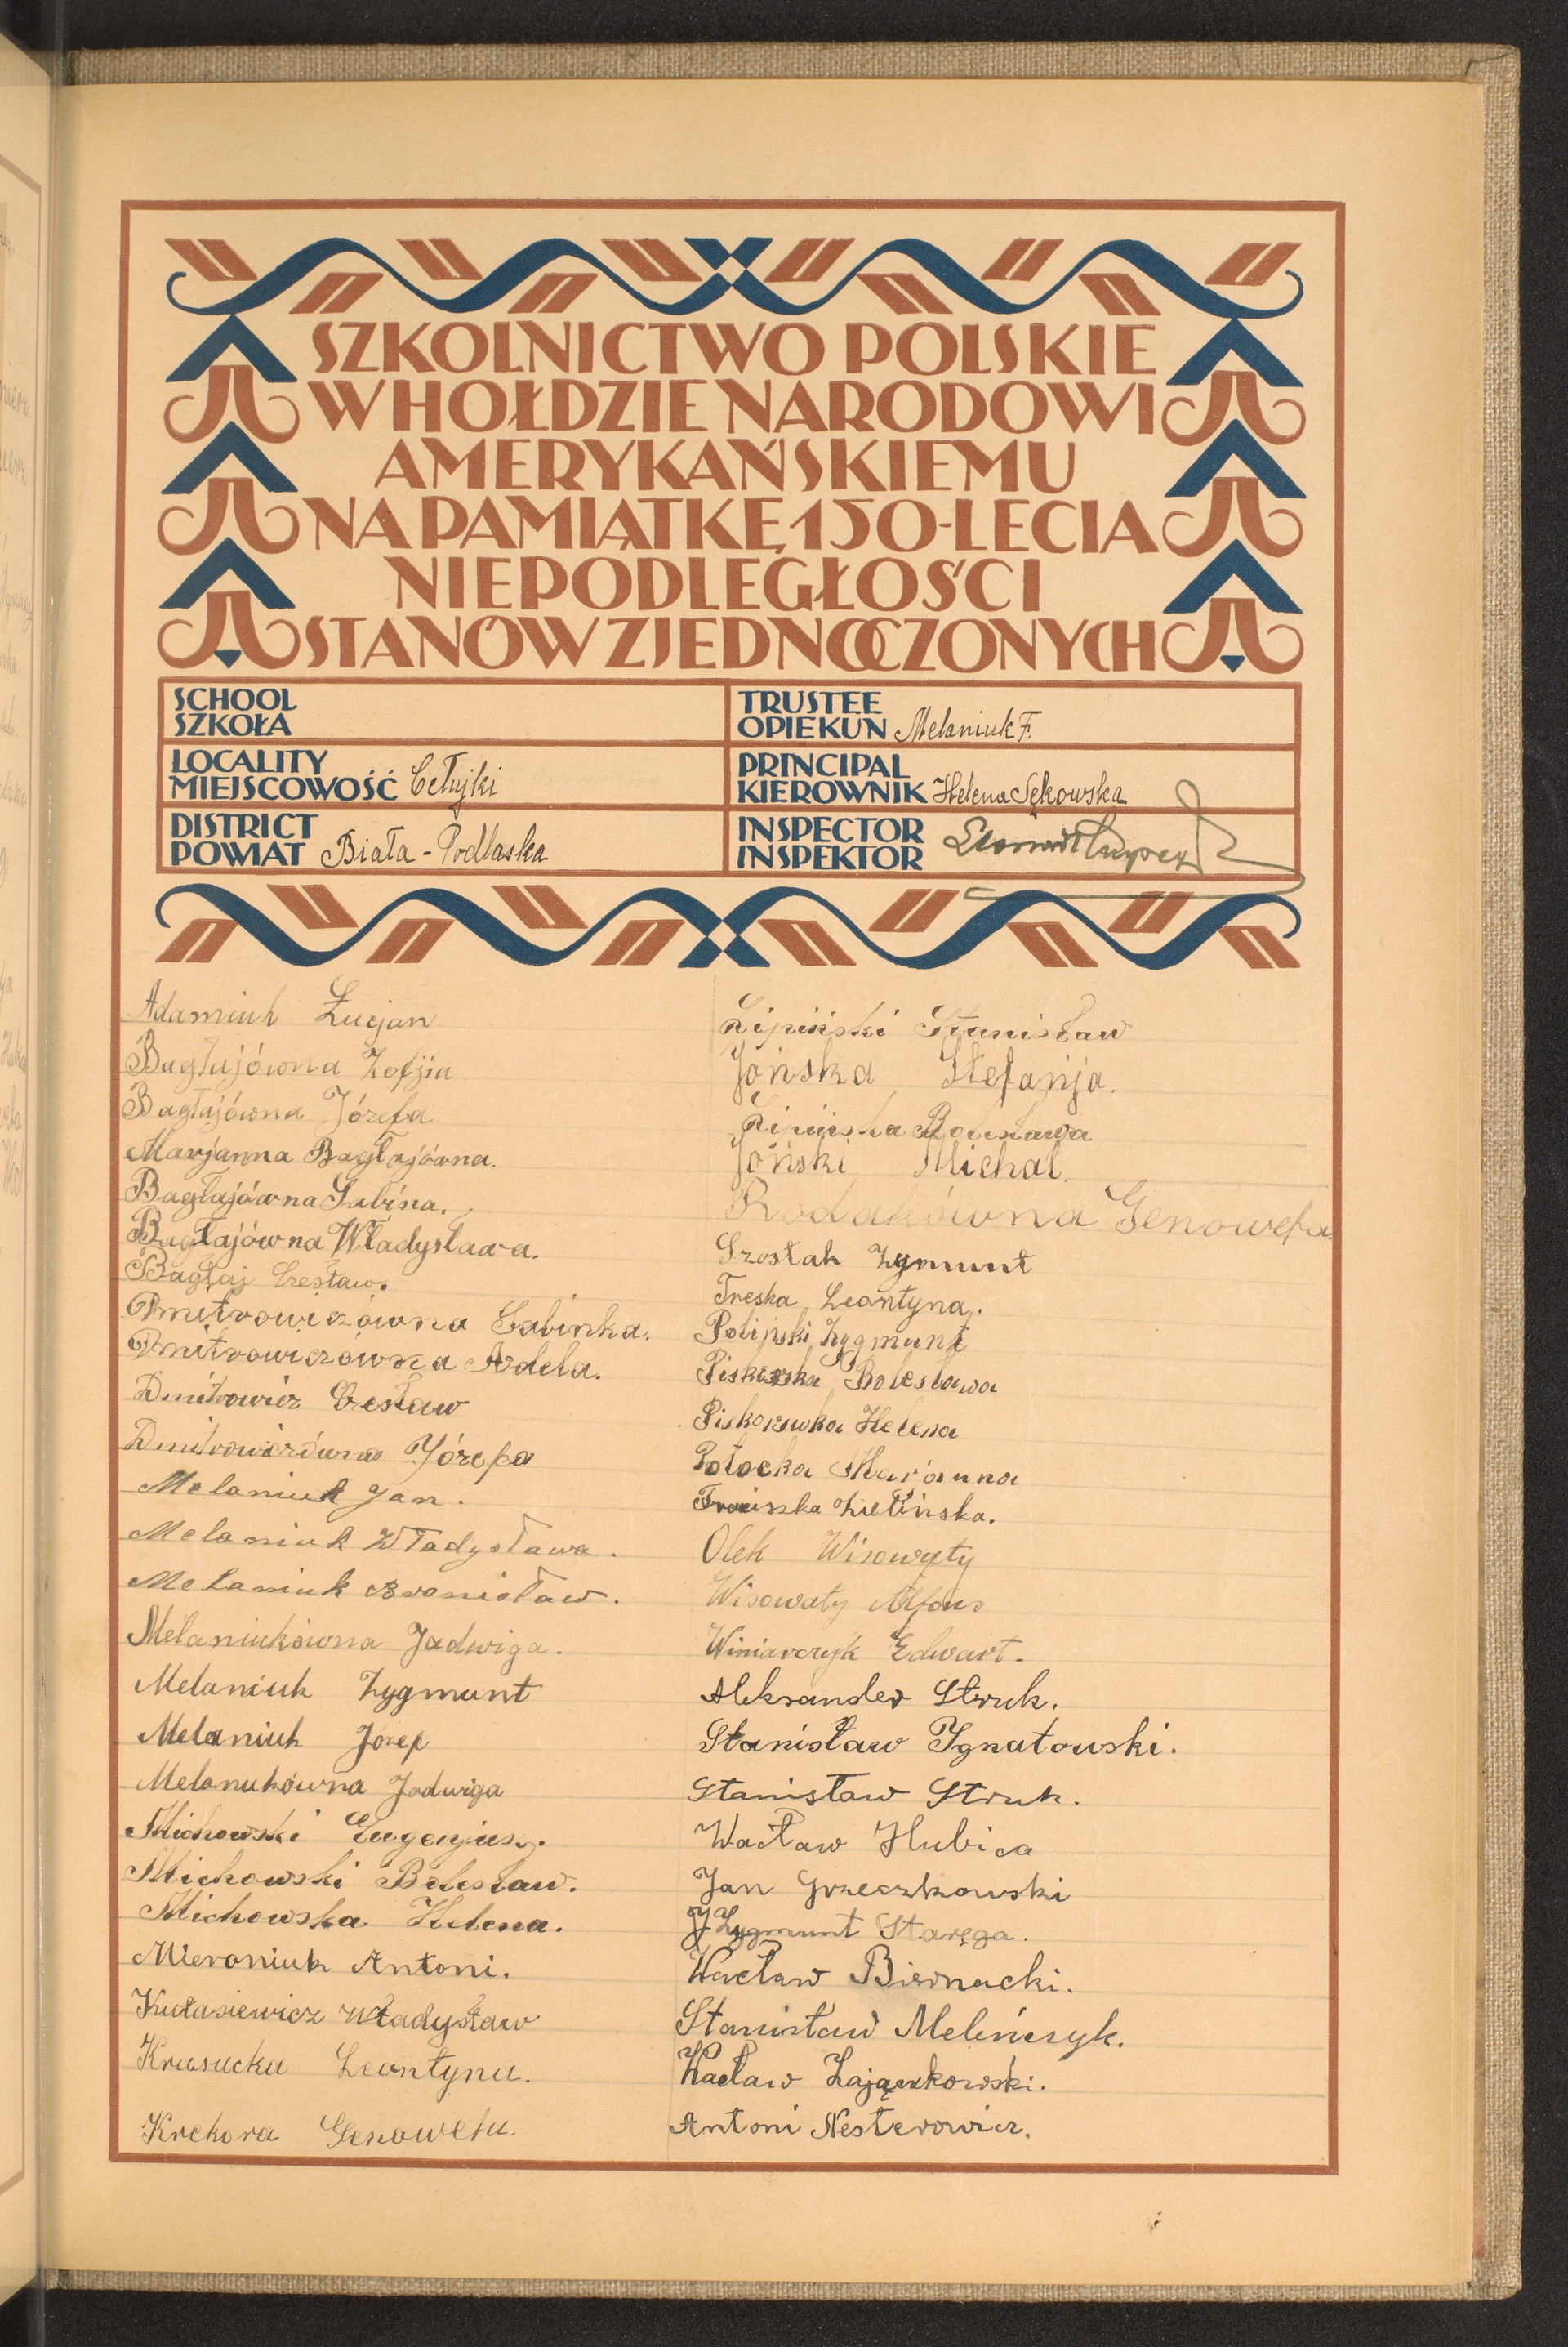 SZKOLNICTWO POLSKIE
W HOŁDZIE NARODOWI
AMERYKAŃSKIEMU
NA PAMIĄTKĘ 150-LECIA
NIEPODLEGŁOŚCI
STANÓW ZJEDNOCZONYCH
SCHOOL
SZKOŁA
LOCALITY
MIEJSCOWOŚĆ Cełujki
DISTRICT
POWIAT Biała-Podlaska
TRUSTEE
OPIEKUN Melaniuk F.
PRINCIPAL
KIEROWNIK Helena Sękowska
INSPECTOR
INSPEKTOR
Adamiuk Łucjan
Bagłajówna Zofjia
Bagłajówna Józefa
Marjanna Bagłajówna.
Bagłajówna Sabina.
Bagłajówna Władysława.
Bagłaj Czesław.
Dmitrowiczówna Sabinka.
Dmitrowiczówna Adela.
Dmitrowicz Czesław
Dmitrowiczówna Józefa
Melaniuk Jan.
Melaniuk Władysława.
Melaniuk Bronisław.
Melaniukówna Jadwiga.
Melaniuk Zygmunt
Melaniuk Józef
Melanukówna Jadwiga
Michowski Eugenjusz.
Michowski Bolesław.
Michowska Helena.
Mieroniuk Antoni.
Kutasiewicz Władysław
Krasucka Leontyna.
Krekora Genowefa.
Lipiński Stanisław
Jońska Stefanja.
Lipińska Bolesława
Joński Michał
Rodakówna Genowefa
Szostak Zygmunt
Treska Leontyna.
Poliński Zygmunt
Piskorska Bolesława
Piskorswka Helena
Potocka Marjanna
Franciszka Zielińska.
Olek Wisowyty
Wisowaty Alfons
Winiarczyk Edwart.
Aleksander Struk.
Stanisław Ignatowski.
Stanisław Struk.
Wacław Hubica
Jan Grzeczkowski
Zygmunt Staręga.
Wacław Biernacki.
Stanisław Meleńczyk.
Wacław Zajączkowski.
Antoni Nesterowicz.